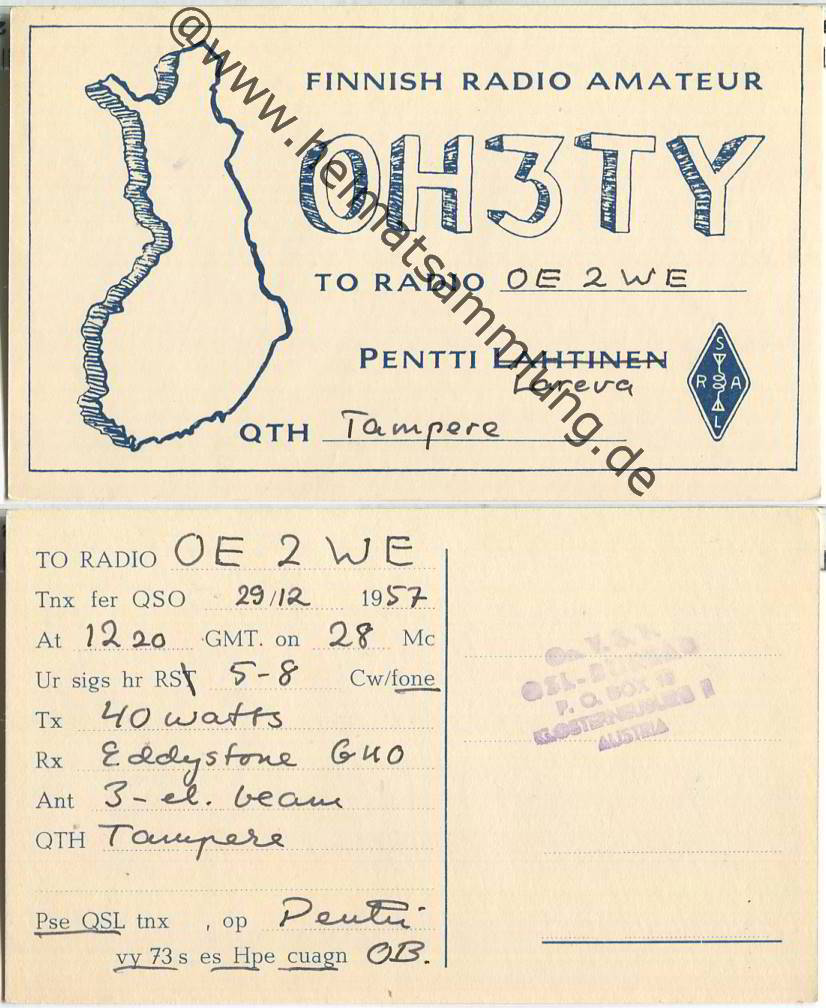 @www.heimatsammlung.de
FINNISH RADIO AMATEUR
OH3TY
TO RADIO OE 2 WE
PENTTI LAHTINEN
Lareva
S
R A
L
QTH Tampere
TO RADIO OE 2 WE
Tnx fer QSO 29/12 1957
At 12 20 GMT. on 28 Mc
Ur sigs hr RST 5-8 Cw/fone
Tx 40 watts
Rx Eddystone 640
Ant 3-el. beam
QTH Tampere
Pse QSL tnx , op Pentti
vy 73 s es Hpe cuagn OB.
Oe. V. S. V.
QSL-BUREAU
P. O. BOX 19
KLOSTERNEUBURG II
AUSTRIA